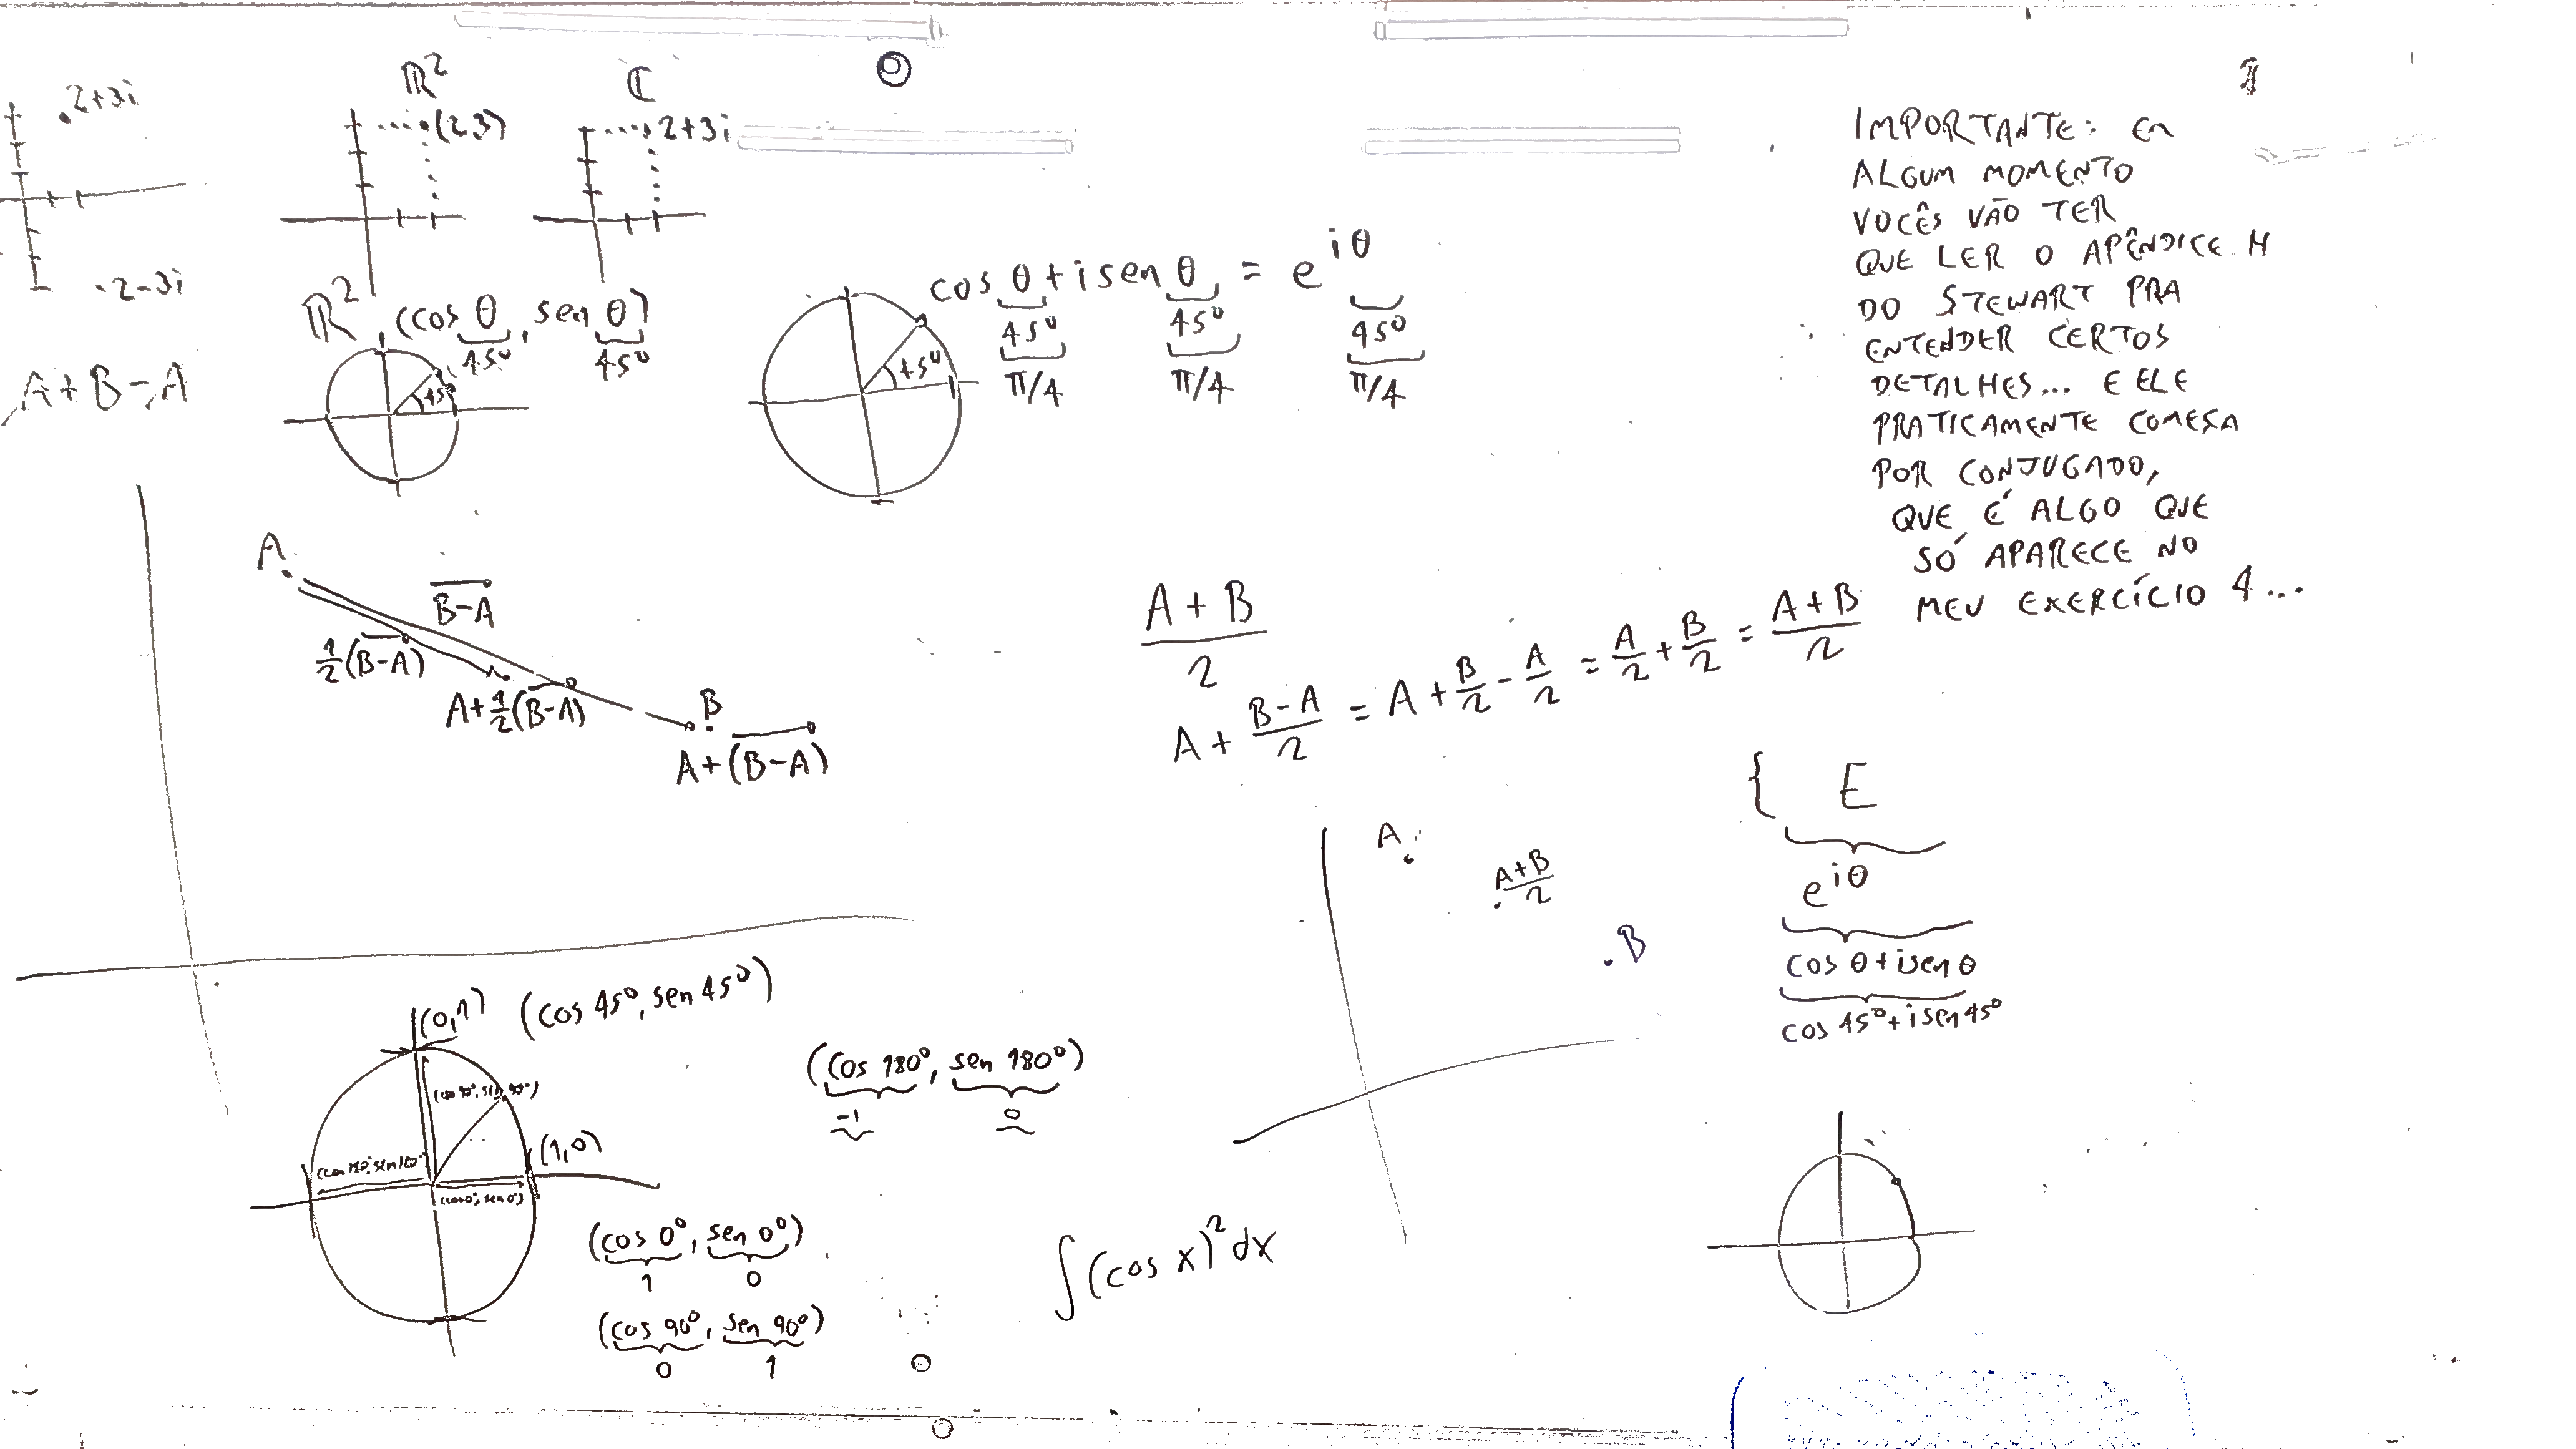 2+3i
2-3i
A+B-A
ℝ²
(2,3)
ℂ
2+3i
ℝ²
(cos θ, sen θ)
45° 45°
45°
cos θ + i sen θ = e^{iθ}
45° 45° 45°
π/4 π/4 π/4
45°
IMPORTANTE: EM
ALGUM MOMENTO
VOCÊS VÃO TER
QUE LER O APÊNDICE H
DO STEWART PRA
ENTENDER CERTOS
DETALHES... E ELE
PRATICAMENTE COMEÇA
POR CONJUGADO,
QUE É ALGO QUE
SÓ APARECE NO
MEU EXERCÍCIO 4...
A
B-A
1/2(B-A)
A+1/2(B-A)
B
A+(B-A)
(A+B)/2
A + (B-A)/2 = A + B/2 - A/2 = A/2 + B/2 = (A+B)/2
A
(A+B)/2
B
{ E
e^{iθ}
cos θ + i sen θ
cos 45° + i sen 45°
(0,1)
(cos 45°, sen 45°)
(cos 90°, sen 90°)
(cos 180°, sen 180°)
(cos 0°, sen 0°)
(1,0)
(cos 180°, sen 180°)
-1 0
(cos 0°, sen 0°)
1 0
(cos 90°, sen 90°)
0 1
∫(cos x)² dx